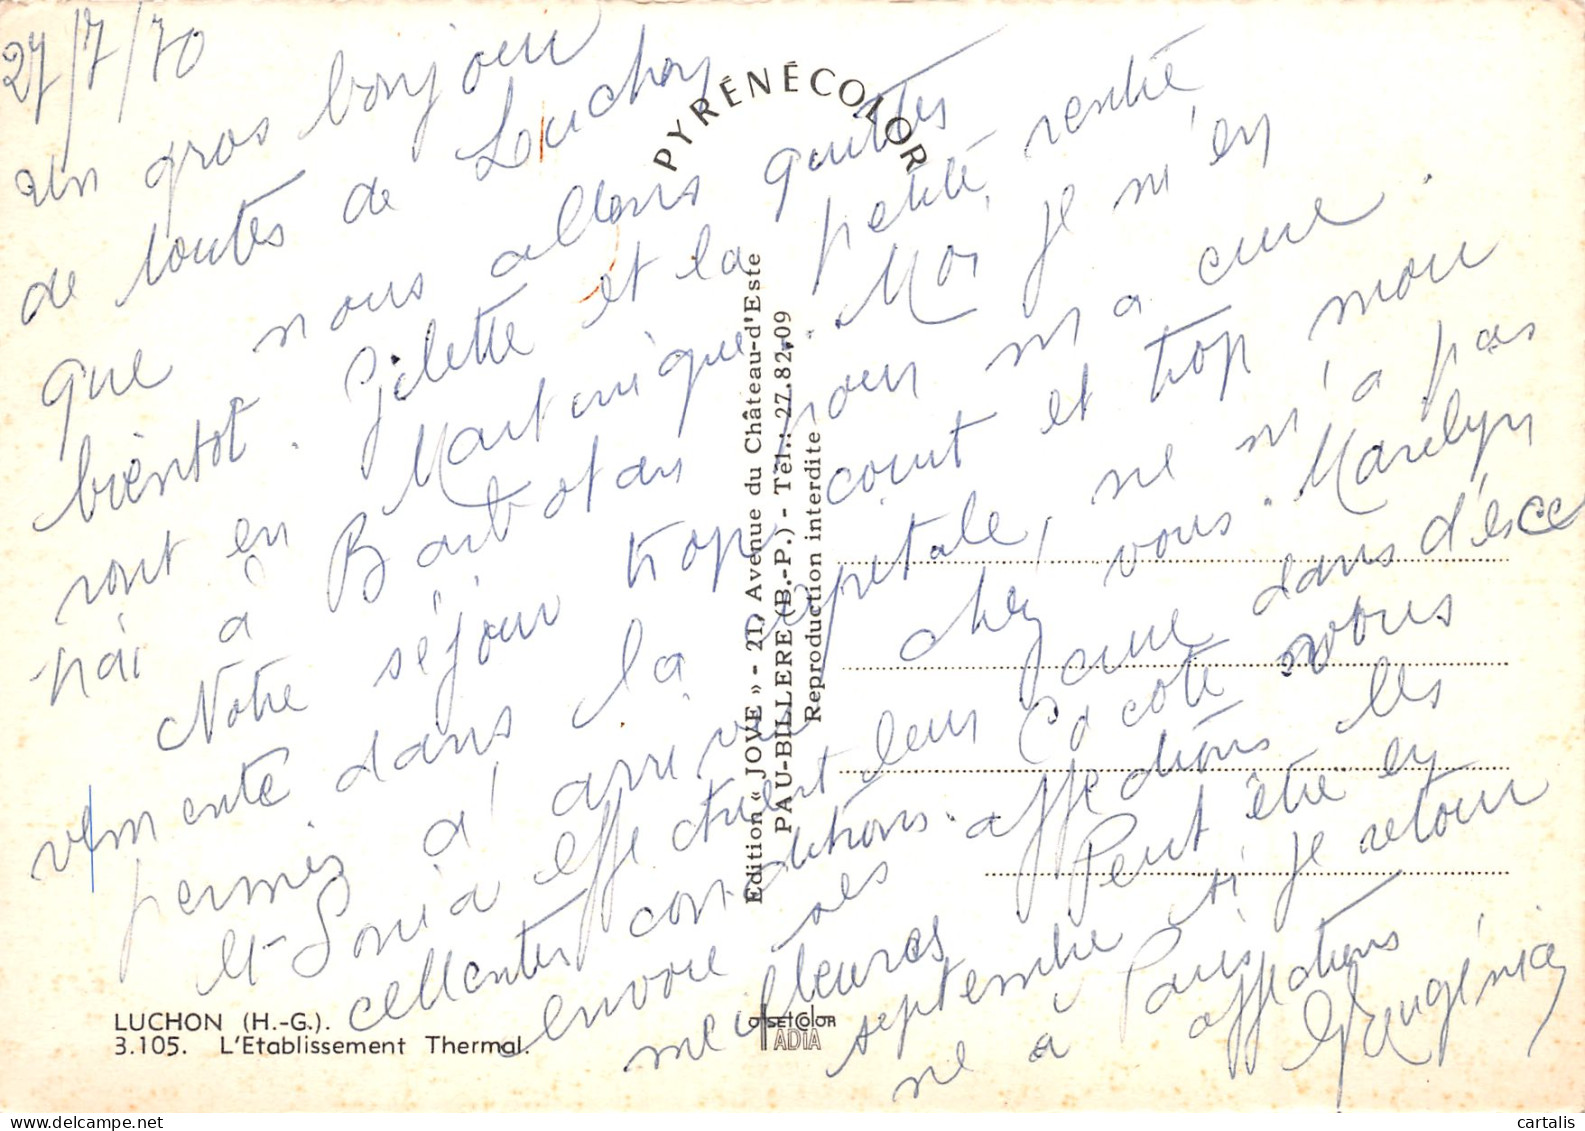 27/7/70
un gros bonjour
de toutes de Luchon
que nous allons quitter
bientot. Gilette et la petite rentre
ront en Martinique. Moi je m'en
irai à Barbotan pour ma cure.
Notre séjour trop court et trop mou
vementé dans la capitale, ne m'a pas
permis d'arriver chez vous. Marilyn
et Sonia effectuent leur cure dans d'exce
cellentes conditions. Ca coté vous
envoie ses affections les
meilleures Peut être en
septembre si je retour
ne à Paris
affections
Eugénia
PYRÉNÉCOLOR
Edition « JOVE » - 21, Avenue du Château-d'Este
PAU-BILLERE (B.-P.) - Tél.: 27.82.09
Reproduction interdite
LUCHON (H.-G.).
3.105. L'Etablissement Thermal.
OFFSET COLOR
ADIA
cartalis